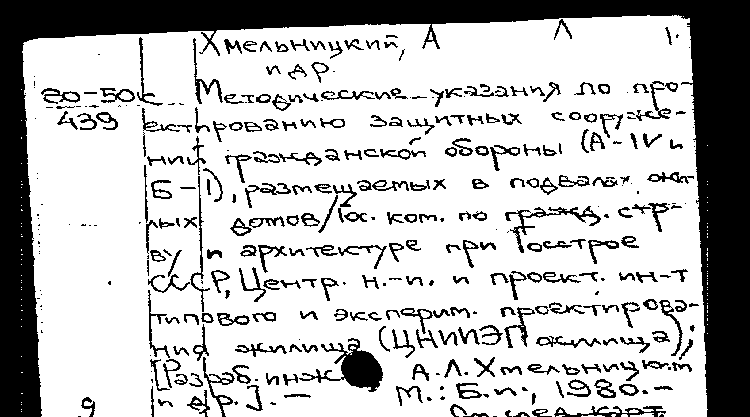 Хмельницкий, А Л 1.
и др.
80-50с Методические указания по про-
439 ектированию защитных сооруже-
ний гражданской обороны (А-IV и
Б-I), размещаемых в подвалах жи-
лых домов/Гос. ком. по гражд. стр-
ву и архитектуре при Госстрое
СССР, Центр. н.-и. и проект. ин-т
типового и эксперим. проектирова-
ния жилища (ЦНИИЭП жилища);
[Разраб. инж. А.Л.Хмельницким
и др.]. — М.: Б.и., 1980. —
9 См. след. карт.